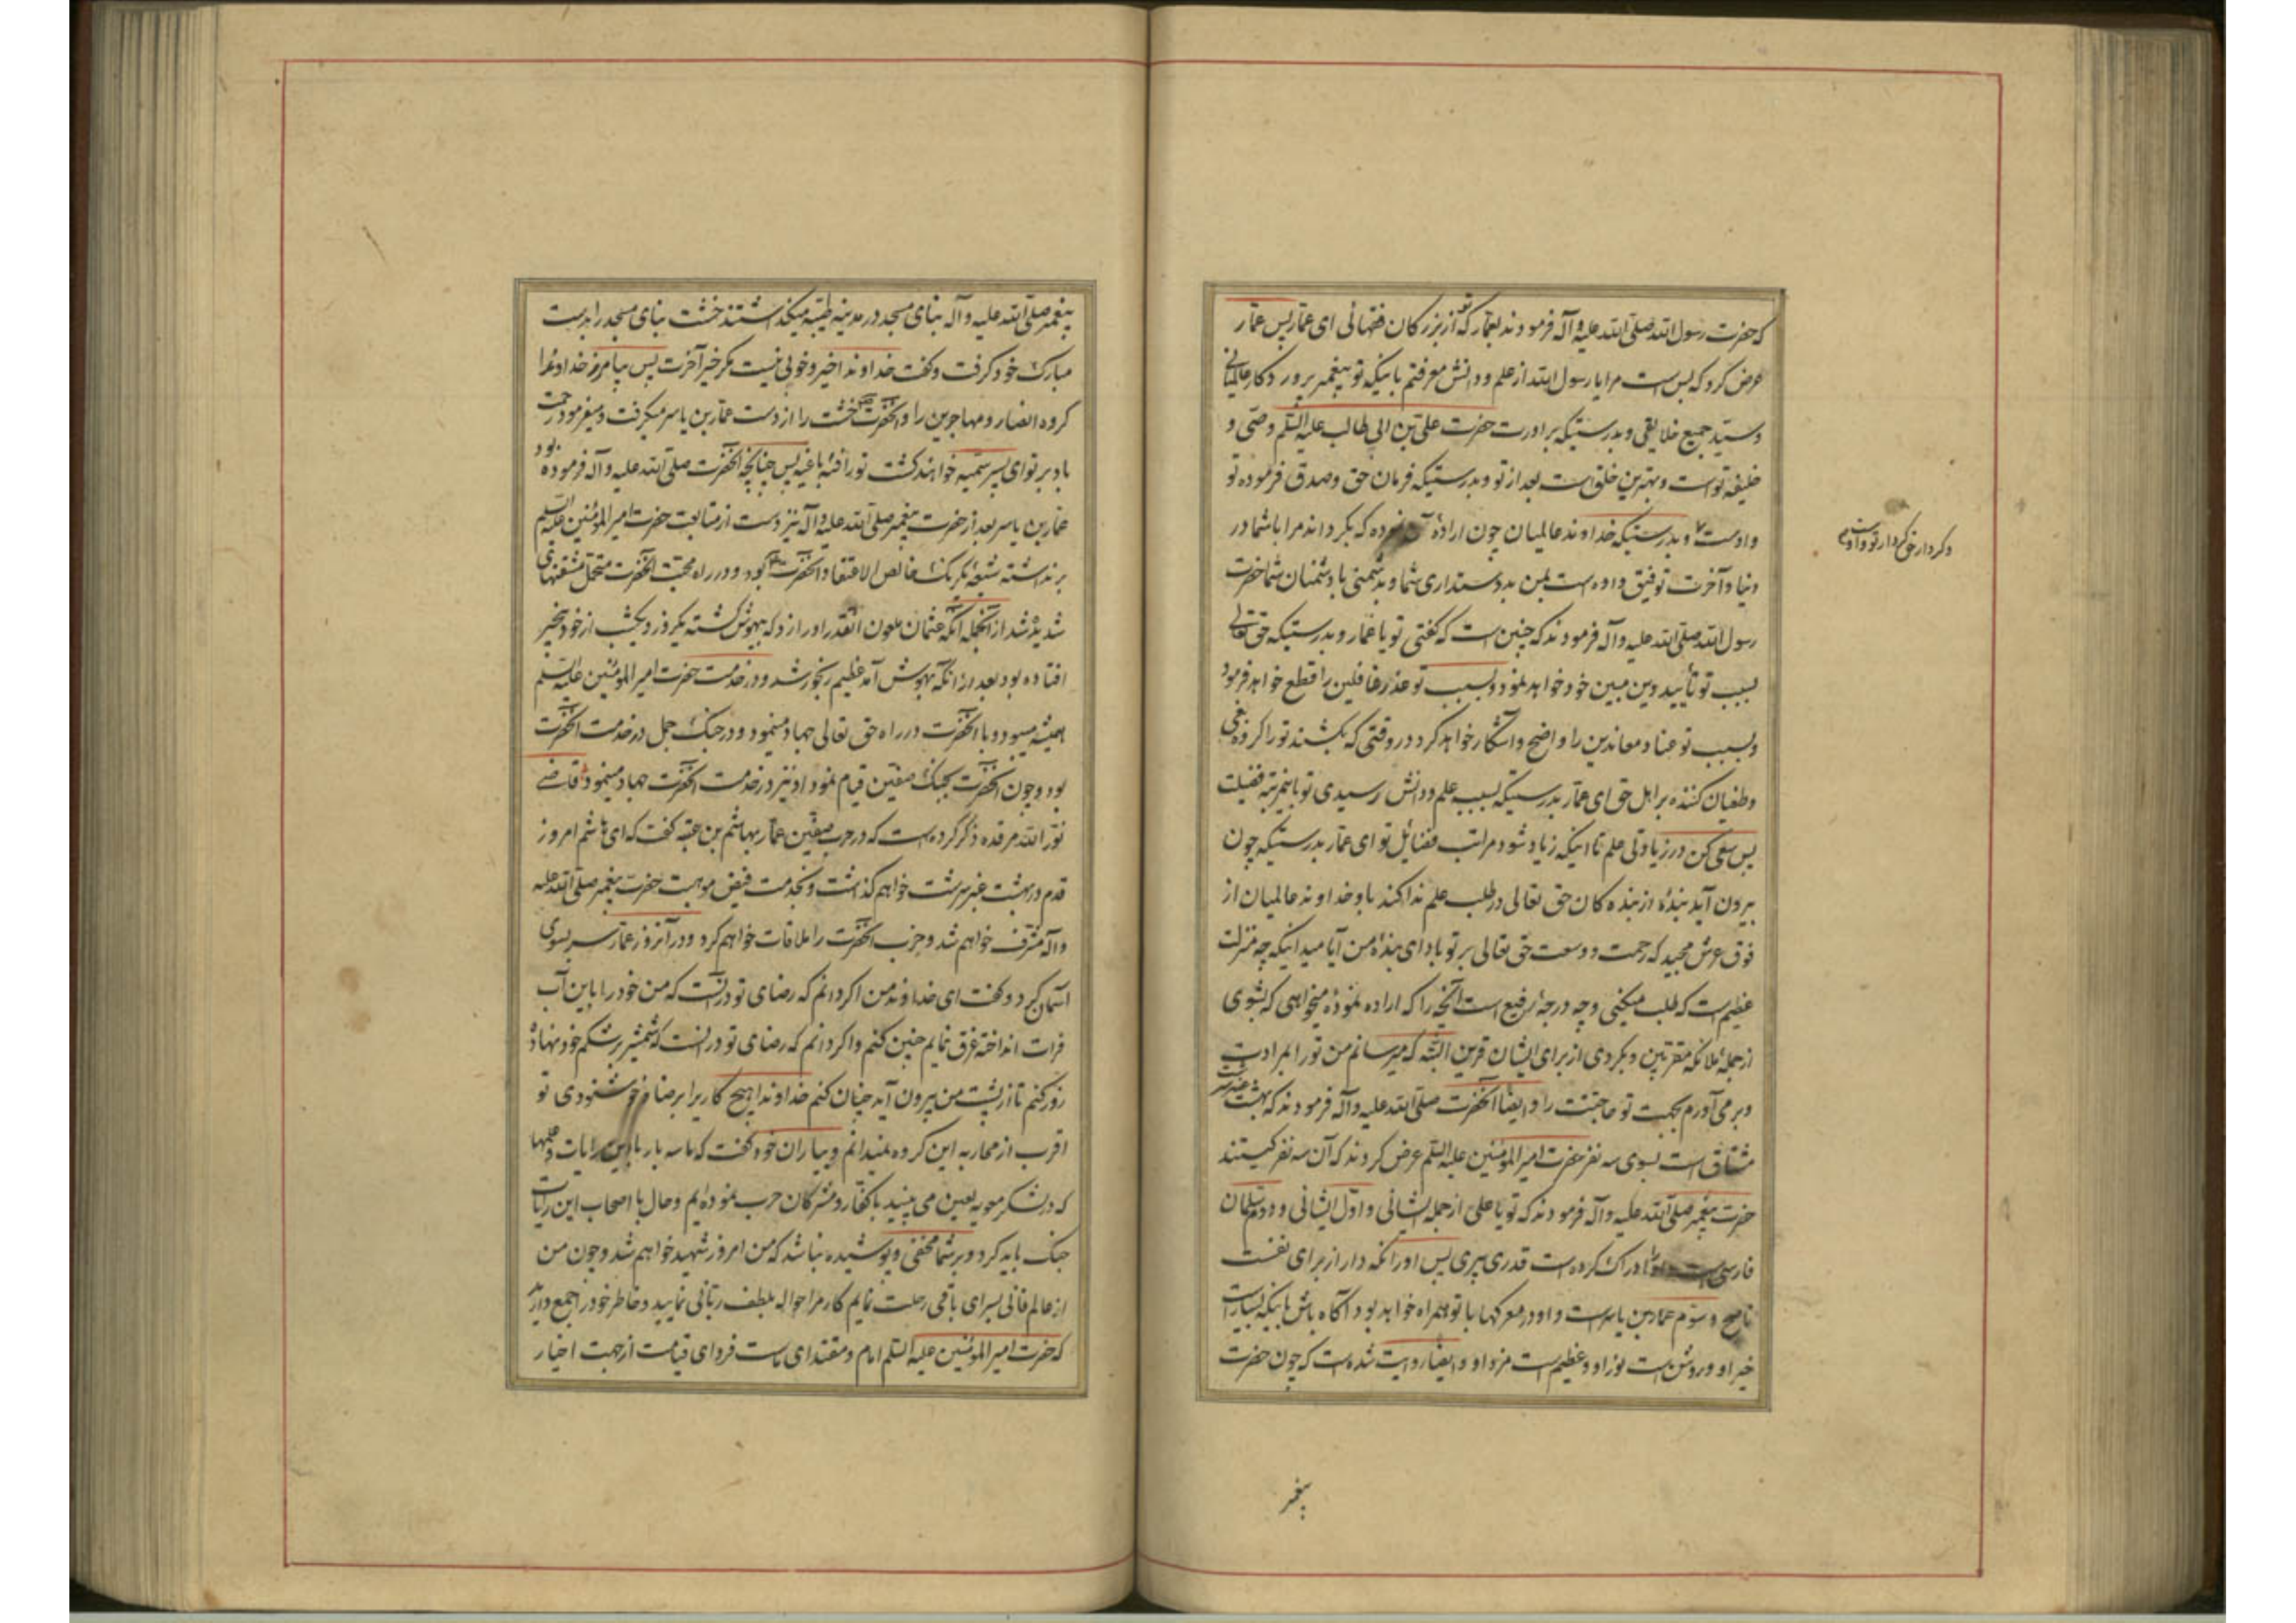 که حضرت رسول الله صلی الله علیه و آله فرمودند بعمار که تو از بزرکان فقهائی ای عمار پس عمار
عرض کرد که بس است مرا یا رسول الله از علم و دانش معرفتم باینکه تو پیغمبر پروردکار عالمیانی
و سید جمیع خلایقی و بدرستیکه برادرت حضرت علی بن ابی طالب علیه السلم وصی و
خلیفه تو است و بهترین خلق است بعد از تو و بدرستیکه فرمان حق و صدق فرموده تو
و اوست و بدرستیکه خداوند عالمیان چون اراده آن نموده که بکرداند مرا با شما در
و کردار حق کردار تو و اوست
دنیا و آخرت توفیق داده است بمن بدوستداری شما و بدشمنی با دشمنان شما حضرت
رسول الله صلی الله علیه و آله فرمودند که چنین است که کفتی تو یا عمار و بدرستیکه حق تعالی
بسبب تو تأیید دین مبین خود خواهد نمود و بسبب تو عذر غافلین را قطع خواهد فرمود
و بسبب تو عناد معاندین را واضح و آشکار خواهد کرد در وقتی که بکشند تو را کروه بغی
و طغیان کننده بر اهل حق ای عمار بدرستیکه بسبب علم و دانش رسیدی تو باینمرتبه فضیلت
پس سعی کن در زیادتی علم تا اینکه زیاد شود مراتب فضائل تو ای عمار بدرستیکه چون
بیرون آید بندهٔ از بنده کان حق تعالی در طلب علم ندا کند باو خداوند عالمیان از
فوق عرش مجید که رحمت و وسعت حق تعالی بر تو باد ای بندهٔ من آیا میدانیکه چه منزلت
عظیم است که طلب میکنی و چه درجهٔ رفیع است آنچه را که اراده نمودهٔ میخواهی که بشوی
از جملهٔ ملائکه مقربین و بکردی از برای ایشان قرین البته که میرسانم من تو را بمرادت
و بر می آورم بجهت تو حاجتت را و ایضا آنحضرت صلی الله علیه و آله فرمودند که بهشت عنبر سرشت
مشتاق است بسوی سه نفر حضرت امیر المؤمنین علیه السلم عرض کردند که آن سه نفر کیستند
حضرت پیغمبر صلی الله علیه و آله فرمودند که تو یا علی از جمله ایشانی و اول ایشانی و دویم سلمان
فارسی است ادراک کرده است قدری پیری پس او را نکه دار از برای نفست
ناصح و سوم عمار بن یاسر است و او در معرکها با تو همراه خواهد بود آکاه باش باینکه بسیار است
خیر او و روشن است نور او و عظیم است مزد او و ایضا روایت شده است که چون حضرت
پیغمبر
پیغمبر صلی الله علیه و آله بنای مسجد در مدینه طیبه میکذاشتند خشت بنای مسجد را بدست
مبارک خود کرفت و کفت خداوندا خیر و خوبی نیست مکر خیر آخرت پس بیامرز خداوندا
کروه انصار و مهاجرین را و آنحضرت خشت را از دست عمار بن یاسر میکرفت و میفرمود رحمت
باد بر تو ای پسر سمیه خواهند کشت تو را فئه باغیه پس چنانچه آنحضرت صلی الله علیه و آله فرموده بود
عمار بن یاسر بعد از حضرت پیغمبر صلی الله علیه و آله نیز دست از متابعت حضرت امیر المؤمنین علیه السلم
بر نداشته شیعهٔ یکرنک خالص الاعتقاد آنحضرت بود و در راه محبت آنحضرت متحمل مشقتهای
شدیده شد از آنجمله آنکه عثمان ملعون آنقدر او را زد که بیهوش کشته یکروز و یکشب از خود بیخبر
افتاده بود بعد از آنکه بهوش آمد عظیم رنجور شد و در خدمت حضرت امیر المؤمنین علیه السلم
همیشه میبود و با آنحضرت در راه حق تعالی جهاد مینمود و در جنک جمل در خدمت آنحضرت
بود و چون آنحضرت بجنک صفین قیام نمود او نیز در خدمت آنحضرت جهاد مینمود قاضی
نور الله مرقده ذکر کرده است که در حرب صفین عمار بهاشم بن عتبه کفت که ای هاشم امروز
قدم در بهشت عنبر سرشت خواهم کذاشت و بخدمت فیض موهبت حضرت پیغمبر صلی الله علیه
و آله مشرف خواهم شد و حزب آنحضرت را ملاقات خواهم کرد و در آنروز عمار سر بسوی
آسمان کرد و کفت ای خداوند من اکر دانم که رضای تو در آنست که من خود را باین آب
فرات انداخته غرق نمایم چنین کنم و اکر دانم که رضای تو در آنست که شمشیر بر شکم خود نهاده
زور کنم تا از پشت من بیرون آید چنان کنم خداوندا هیچ کاریرا برضا و خوشنودی تو
اقرب از محاربه این کروه نمیدانم و بیاران خود کفت که ما سه بار با این رایات و علمها
که در لشکر معویه لعین می بینید با کفار و مشرکان حرب نموده ایم و حال با اصحاب این رایات
جنک باید کرد و بر شما مخفی و پوشیده نباشد که من امروز شهید خواهم شد و چون من
از عالم فانی بسرای باقی رحلت نمایم کار مرا حواله بلطف ربانی نمایید و خاطر خود را جمع دارید
که حضرت امیر المؤمنین علیه السلم امام و مقتدای ماست فردای قیامت از جهت اخیار